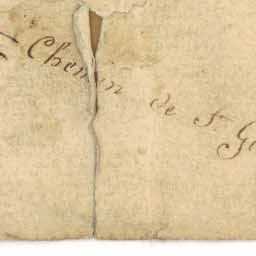 Chemin de St